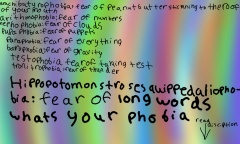 fear of Peanut butter sticking to the roof
of your mouth
arithmophobia: fear of numbers
nephophobia: fear of clouds
Pupaphobia: fear of puppets
panaphobia: fear of everything
barophobia: fear of gravity
testophobia: fear of taking test
fear of thunder
Hippopotomonstrosesquippedaliopho-
bia: fear of long words
whats your phobia
read